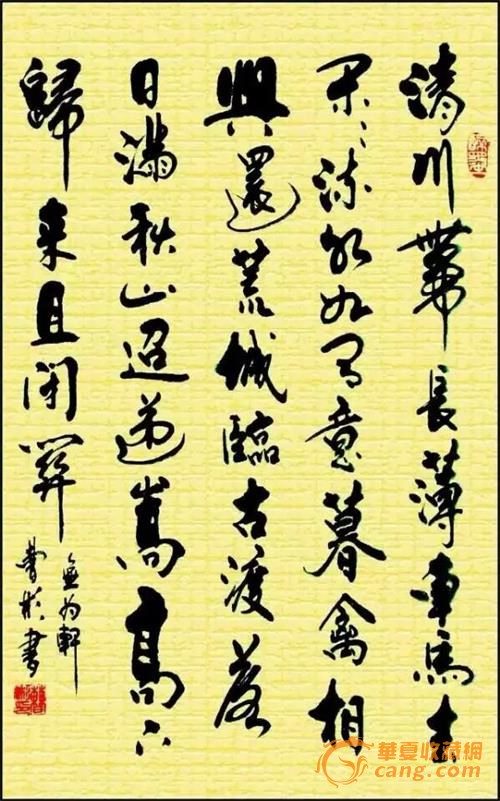 清川帶長薄車馬去
閑々流水如有意暮禽相
與還荒城臨古渡落
日滿秋山迢遞嵩高下
歸来且閉關
無为軒
書
華夏收藏網
cang.com